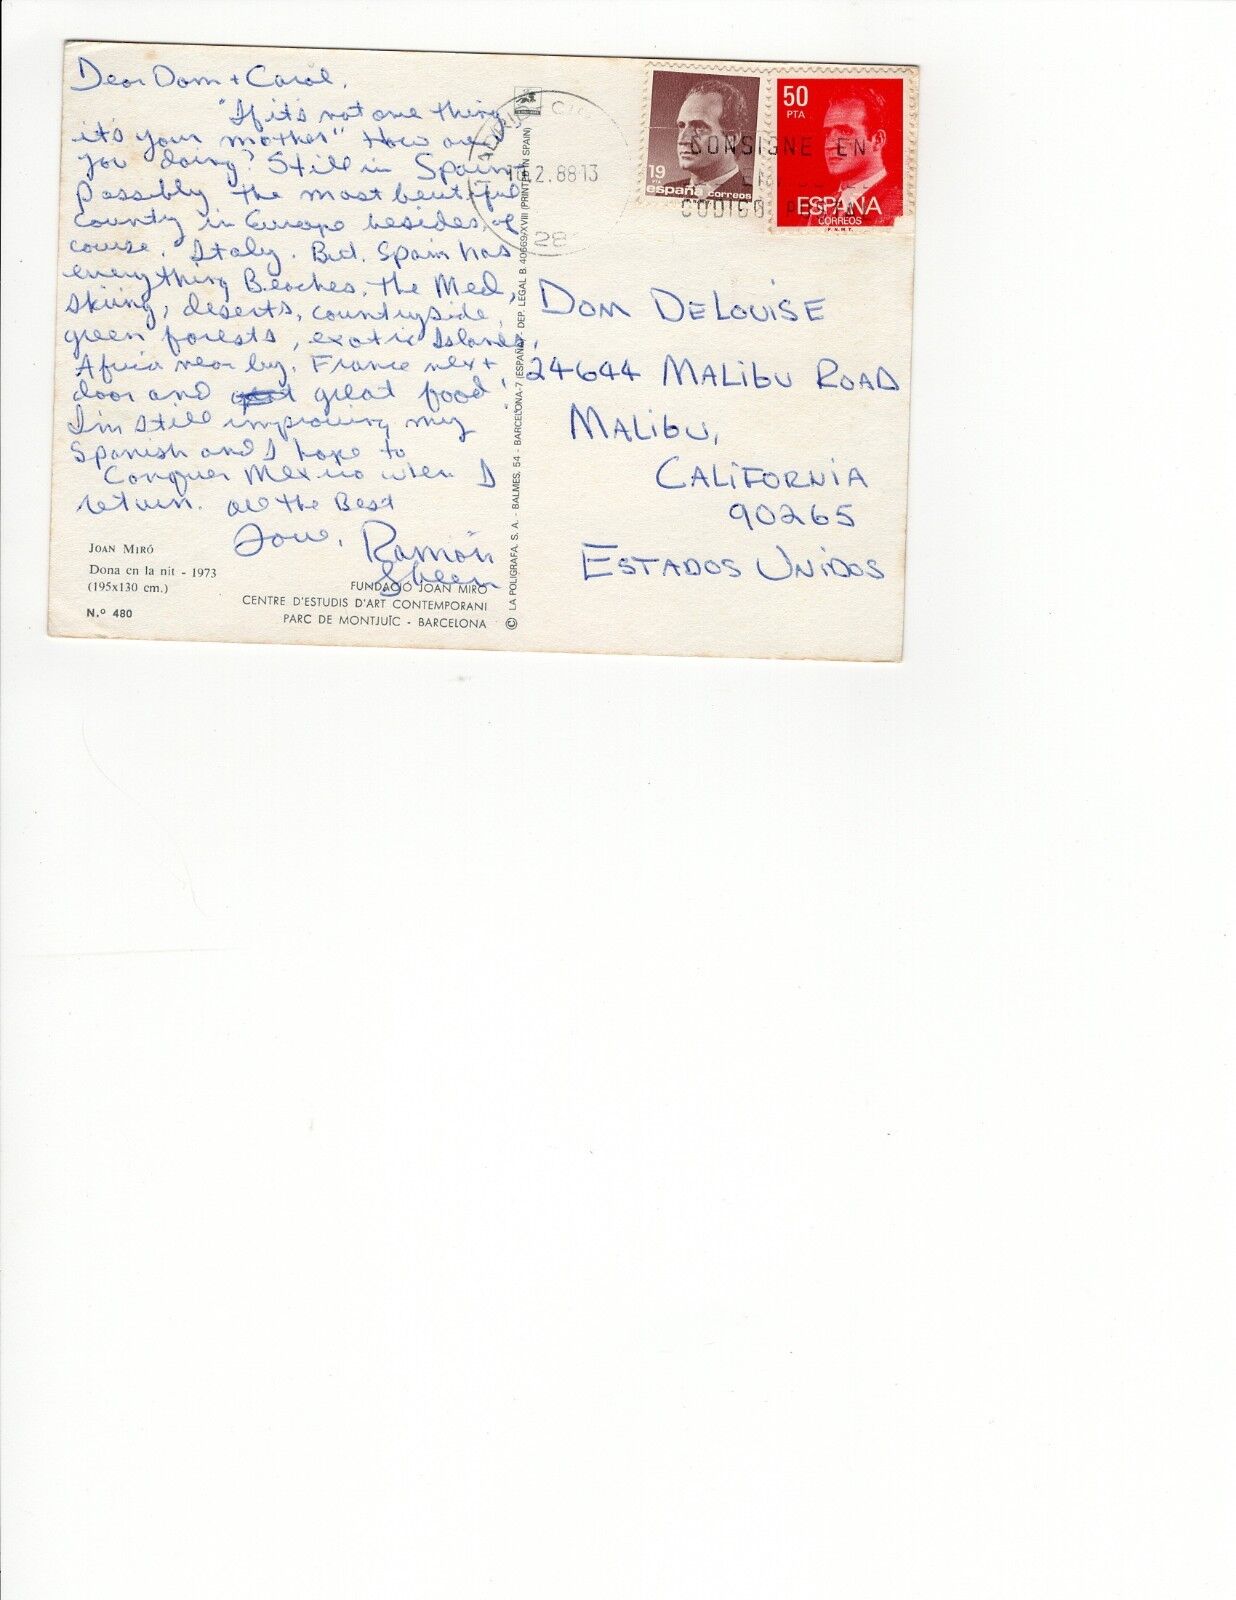 Dear Dom + Carol,
"If it's not one thing,
it's your mother" How are
you doing? Still in Spain
Possibly the most beutiful
County in Europe besides, of
course, Italy. But Spain has
everything Beaches, the Med,
skiing, deserts, countryside,
green forests, exotic Islands,
Africa near by, France next
door and great food!
I'm still improving my
Spanish and I hope to
Conquer Mexico when I
return. All the Best
Love, Ramón
Sheen
JOAN MIRÓ
Dona en la nit - 1973
(195x130 cm.)
N.º 480
FUNDACIÓ JOAN MIRÓ
CENTRE D'ESTUDIS D'ART CONTEMPORANI
PARC DE MONTJUÏC - BARCELONA
© LA POLIGRAFA, S. A. - BALMES, 54 - BARCELONA-7 (ESPAÑA) - DEP. LEGAL B. 40669/XVIII (PRINTED IN SPAIN)
2.88 13
28
19
PTA
españa correos
50
PTA
ESPAÑA
CORREOS
F.N.M.T.
CONSIGNE EN
CODIGO
DOM DELOUISE
24644 MALIBU ROAD
MALIBU,
CALIFORNIA
90265
ESTADOS UNIDOS